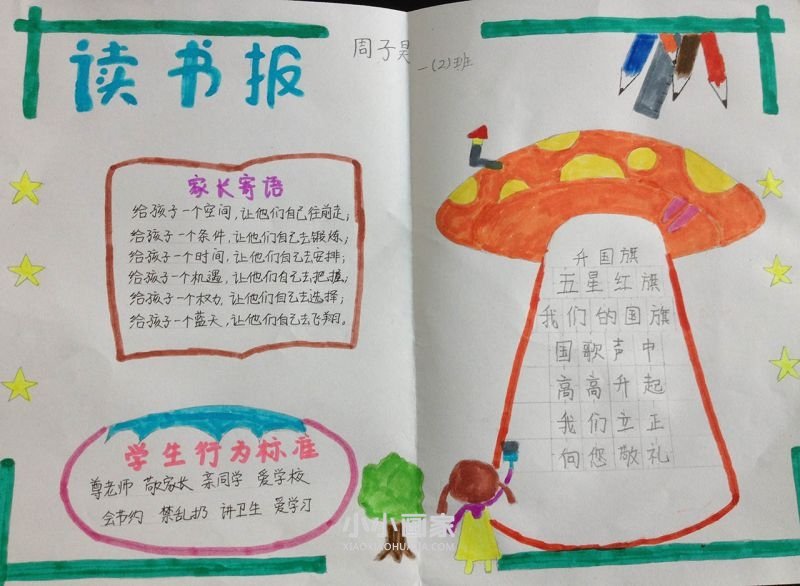 读书报
周子昊
一(2)班
家长寄语
给孩子一个空间,让他们自己往前走;
给孩子一个条件,让他们自己去锻炼;
给孩子一个时间,让他们自己去安排;
给孩子一个机遇,让他们自己去把握;
给孩子一个权力,让他们自己去选择;
给孩子一个蓝天,让他们自己去飞翔。
学生行为标准
尊老师 敬家长 亲同学 爱学校
会节约 禁乱扔 讲卫生 爱学习
升国旗
五星红旗
我们的国旗
国歌声中
高高升起
我们立正
向您敬礼
小小画家
XIAOXIAOHUAJIA.COM